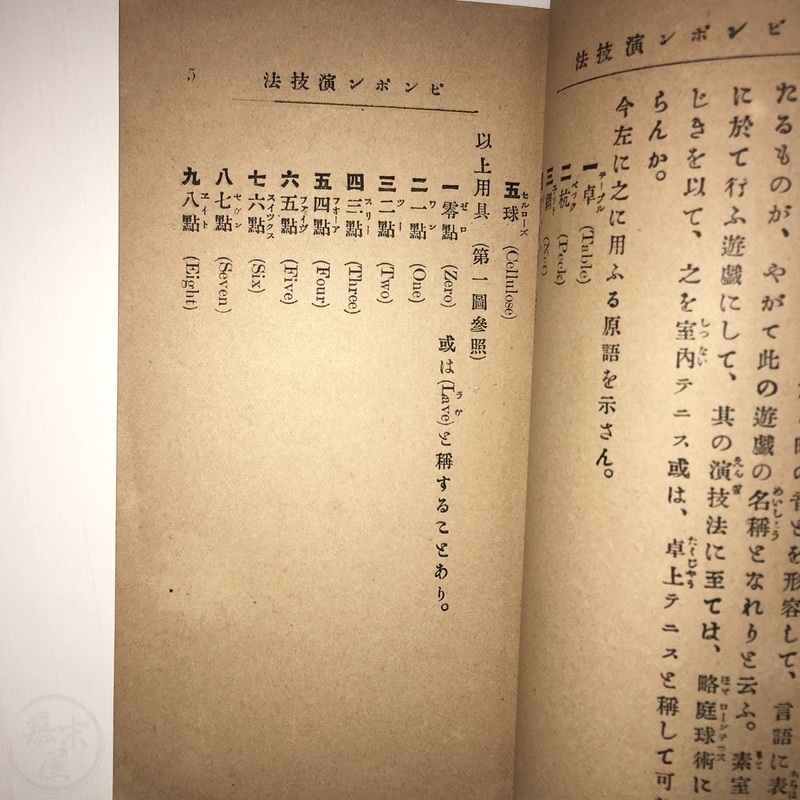 ピンポン演技法
音とを形容して、言語に表
たるものが、やがて此の遊戯の名稱となれりと云ふ。素室
に於て行ふ遊戯にして、其の演技法に至ては、略庭球術に
じきを以て、之を室内テニス或は、卓上テニスと稱して可
らんか。
今左に之に用ふる原語を示さん。
一 卓 テーブル (Table)
二 杭
三 網
ピンポン演技法
5
五 球 セルローズ (Cellulose)
以上用具 (第一圖參照)
一 零點 ゼロ (Zero) 或は(Lave)ラヴと稱することあり。
二 一點 ワン (One)
三 二點 ツー (Two)
四 三點 スリー (Three)
五 四點 フォーア (Four)
六 五點 ファイヴ (Five)
七 六點 スイックス (Six)
八 七點 セヴン (Seven)
九 八點 エイト (Eight)